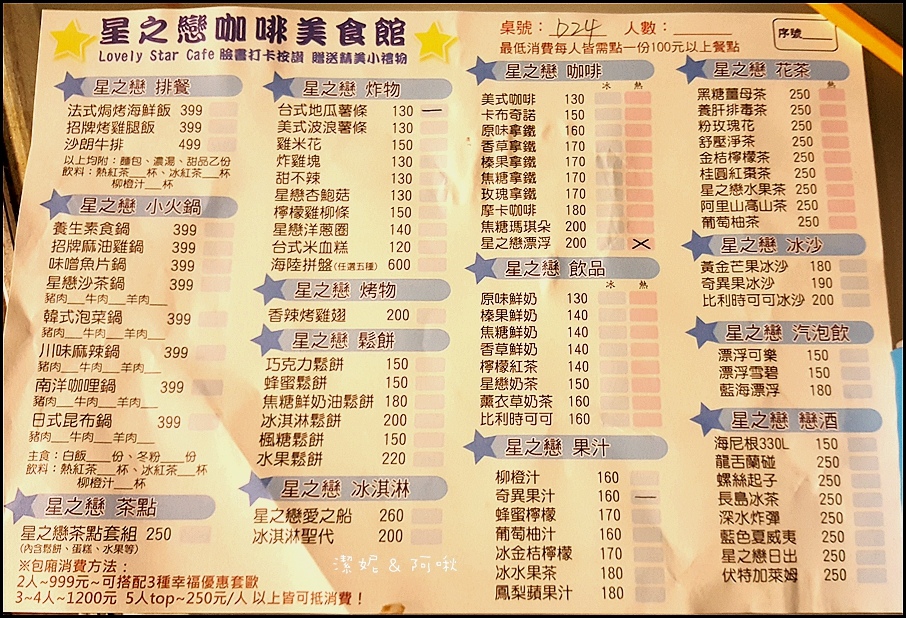 星之戀咖啡美食館
Lovely Star Cafe 臉書打卡按讚 贈送精美小禮物
桌號： D24 人數：
最低消費每人皆需點一份100元以上餐點
序號
星之戀 排餐
法式焗烤海鮮飯 399
招牌烤雞腿飯 399
沙朗牛排 499
以上均附：麵包、濃湯、甜品乙份
飲料：熱紅茶__杯、冰紅茶__杯
柳橙汁__杯
星之戀 小火鍋
養生素食鍋 399
招牌麻油雞鍋 399
味噌魚片鍋 399
星戀沙茶鍋 399
豬肉__牛肉__羊肉__
韓式泡菜鍋 399
豬肉__牛肉__羊肉__
川味麻辣鍋 399
豬肉__牛肉__羊肉__
南洋咖哩鍋 399
豬肉__牛肉__羊肉__
日式昆布鍋 399
豬肉__牛肉__羊肉__
主食：白飯____份、冬粉____份
飲料：熱紅茶__杯、冰紅茶__杯
柳橙汁__杯
星之戀 茶點
星之戀茶點套組 250
(內含鬆餅、蛋糕、水果等)
※包廂消費方法：
2人~999元~可搭配3種幸福優惠套歐
3~4人~1200元 5人top~250元/人 以上皆可抵消費！
星之戀 炸物
台式地瓜薯條 130
美式波浪薯條 130
雞米花 150
炸雞塊 130
甜不辣 130
星戀杏鮑菇 130
檸檬雞柳條 150
星戀洋蔥圈 140
台式米血糕 120
海陸拼盤(任選五種) 600
星之戀 烤物
香辣烤雞翅 200
星之戀 鬆餅
巧克力鬆餅 150
蜂蜜鬆餅 150
焦糖鮮奶油鬆餅 180
冰淇淋鬆餅 200
楓糖鬆餅 150
水果鬆餅 220
星之戀 冰淇淋
星之戀愛之船 260
冰淇淋聖代 200
潔妮 & 阿啾
星之戀 咖啡
冰 熱
美式咖啡 130
卡布奇諾 150
原味拿鐵 160
香草拿鐵 170
榛果拿鐵 170
焦糖拿鐵 170
玫瑰拿鐵 170
摩卡咖啡 180
焦糖瑪琪朵 200
星之戀漂浮 200
星之戀 飲品
冰 熱
原味鮮奶 130
榛果鮮奶 140
焦糖鮮奶 140
香草鮮奶 140
檸檬紅茶 140
星戀奶茶 150
薰衣草奶茶 160
比利時可可 160
星之戀 果汁
柳橙汁 160
奇異果汁 160
蜂蜜檸檬 170
葡萄柚汁 160
冰金桔檸檬 170
冰水果茶 180
鳳梨蘋果汁 180
星之戀 花茶
熱
黑糖薑母茶 250
養肝排毒茶 250
粉玫瑰花 250
舒壓淨茶 250
金桔檸檬茶 250
桂圓紅棗茶 250
星之戀水果茶 250
阿里山高山茶 250
葡萄柚茶 250
星之戀 冰沙
黃金芒果冰沙 180
奇異果冰沙 190
比利時可可冰沙 200
星之戀 汽泡飲
漂浮可樂 150
漂浮雪碧 150
藍海漂浮 180
星之戀 戀酒
海尼根330L 150
龍舌蘭碰 250
螺絲起子 250
長島冰茶 250
深水炸彈 250
藍色夏威夷 250
星之戀日出 250
伏特加萊姆 250